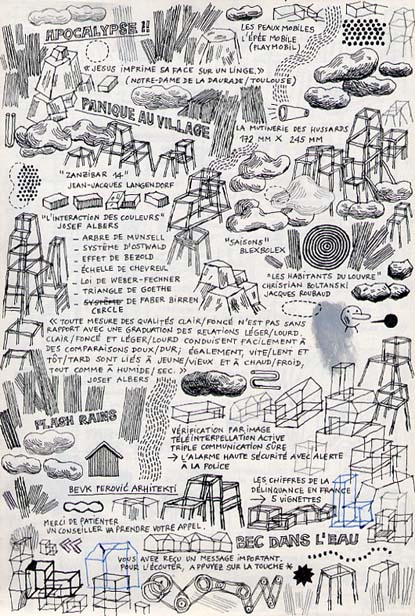 APOCALYPSE !!
LES PEAUX MOBILES
L'ÉPÉE MOBILE
(PLAYMOBIL)
« JESUS IMPRIME SA FACE SUR UN LINGE, »
(NOTRE-DAME DE LA DAURADE / TOULOUSE)
PANIQUE AU VILLAGE
LA MUTINERIE DES HUSSARDS
172 MM X 245 MM
"ZANZIBAR 14"
JEAN-JACQUES LANGENDORF
"L'INTERACTION DES COULEURS"
JOSEF ALBERS
– ARBRE DE MUNSELL
– SYSTÈME D'OSTWALD
– EFFET DE BEZOLD
– ÉCHELLE DE CHEVREUL
– LOI DE WEBER-FECHNER
– TRIANGLE DE GOETHE
– SYSTÈME DE FABER BIRREN
CERCLE
"SAISONS"
BLEXBOLEX
"LES HABITANTS DU LOUVRE"
CHRISTIAN BOLTANSKI
JACQUES ROUBAUD
« TOUTE MESURE DES QUALITÉS CLAIR/FONCÉ N'EST PAS SANS
RAPPORT AVEC UNE GRADUATION DES RELATIONS LÉGER/LOURD.
CLAIR/FONCÉ ET LÉGER/LOURD CONDUISENT FACILEMENT À
DES COMPARAISONS DOUX/DUR; ÉGALEMENT, VITE/LENT ET
TÔT/TARD SONT LIÉS À JEUNE/VIEUX ET À CHAUD/FROID,
TOUT COMME À HUMIDE/SEC. »
JOSEF ALBERS
FLASH RAINS
VÉRIFICATION PAR IMAGE
TÉLÉINTERPELLATION ACTIVE
TRIPLE COMMUNICATION SÛRE
→ L'ALARME HAUTE SÉCURITÉ AVEC ALERTE
À LA POLICE
BEVK PEROVIĆ ARHITEKTI
LES CHIFFRES DE LA
DÉLINQUANCE EN FRANCE
→ 5 VIGNETTES
MERCI DE PATIENTER
UN CONSEILLER VA PRENDRE VOTRE APPEL.
BEC DANS L'EAU
VOUS AVEZ REÇU UN MESSAGE IMPORTANT.
POUR L'ÉCOUTER, APPUYEZ SUR LA TOUCHE *